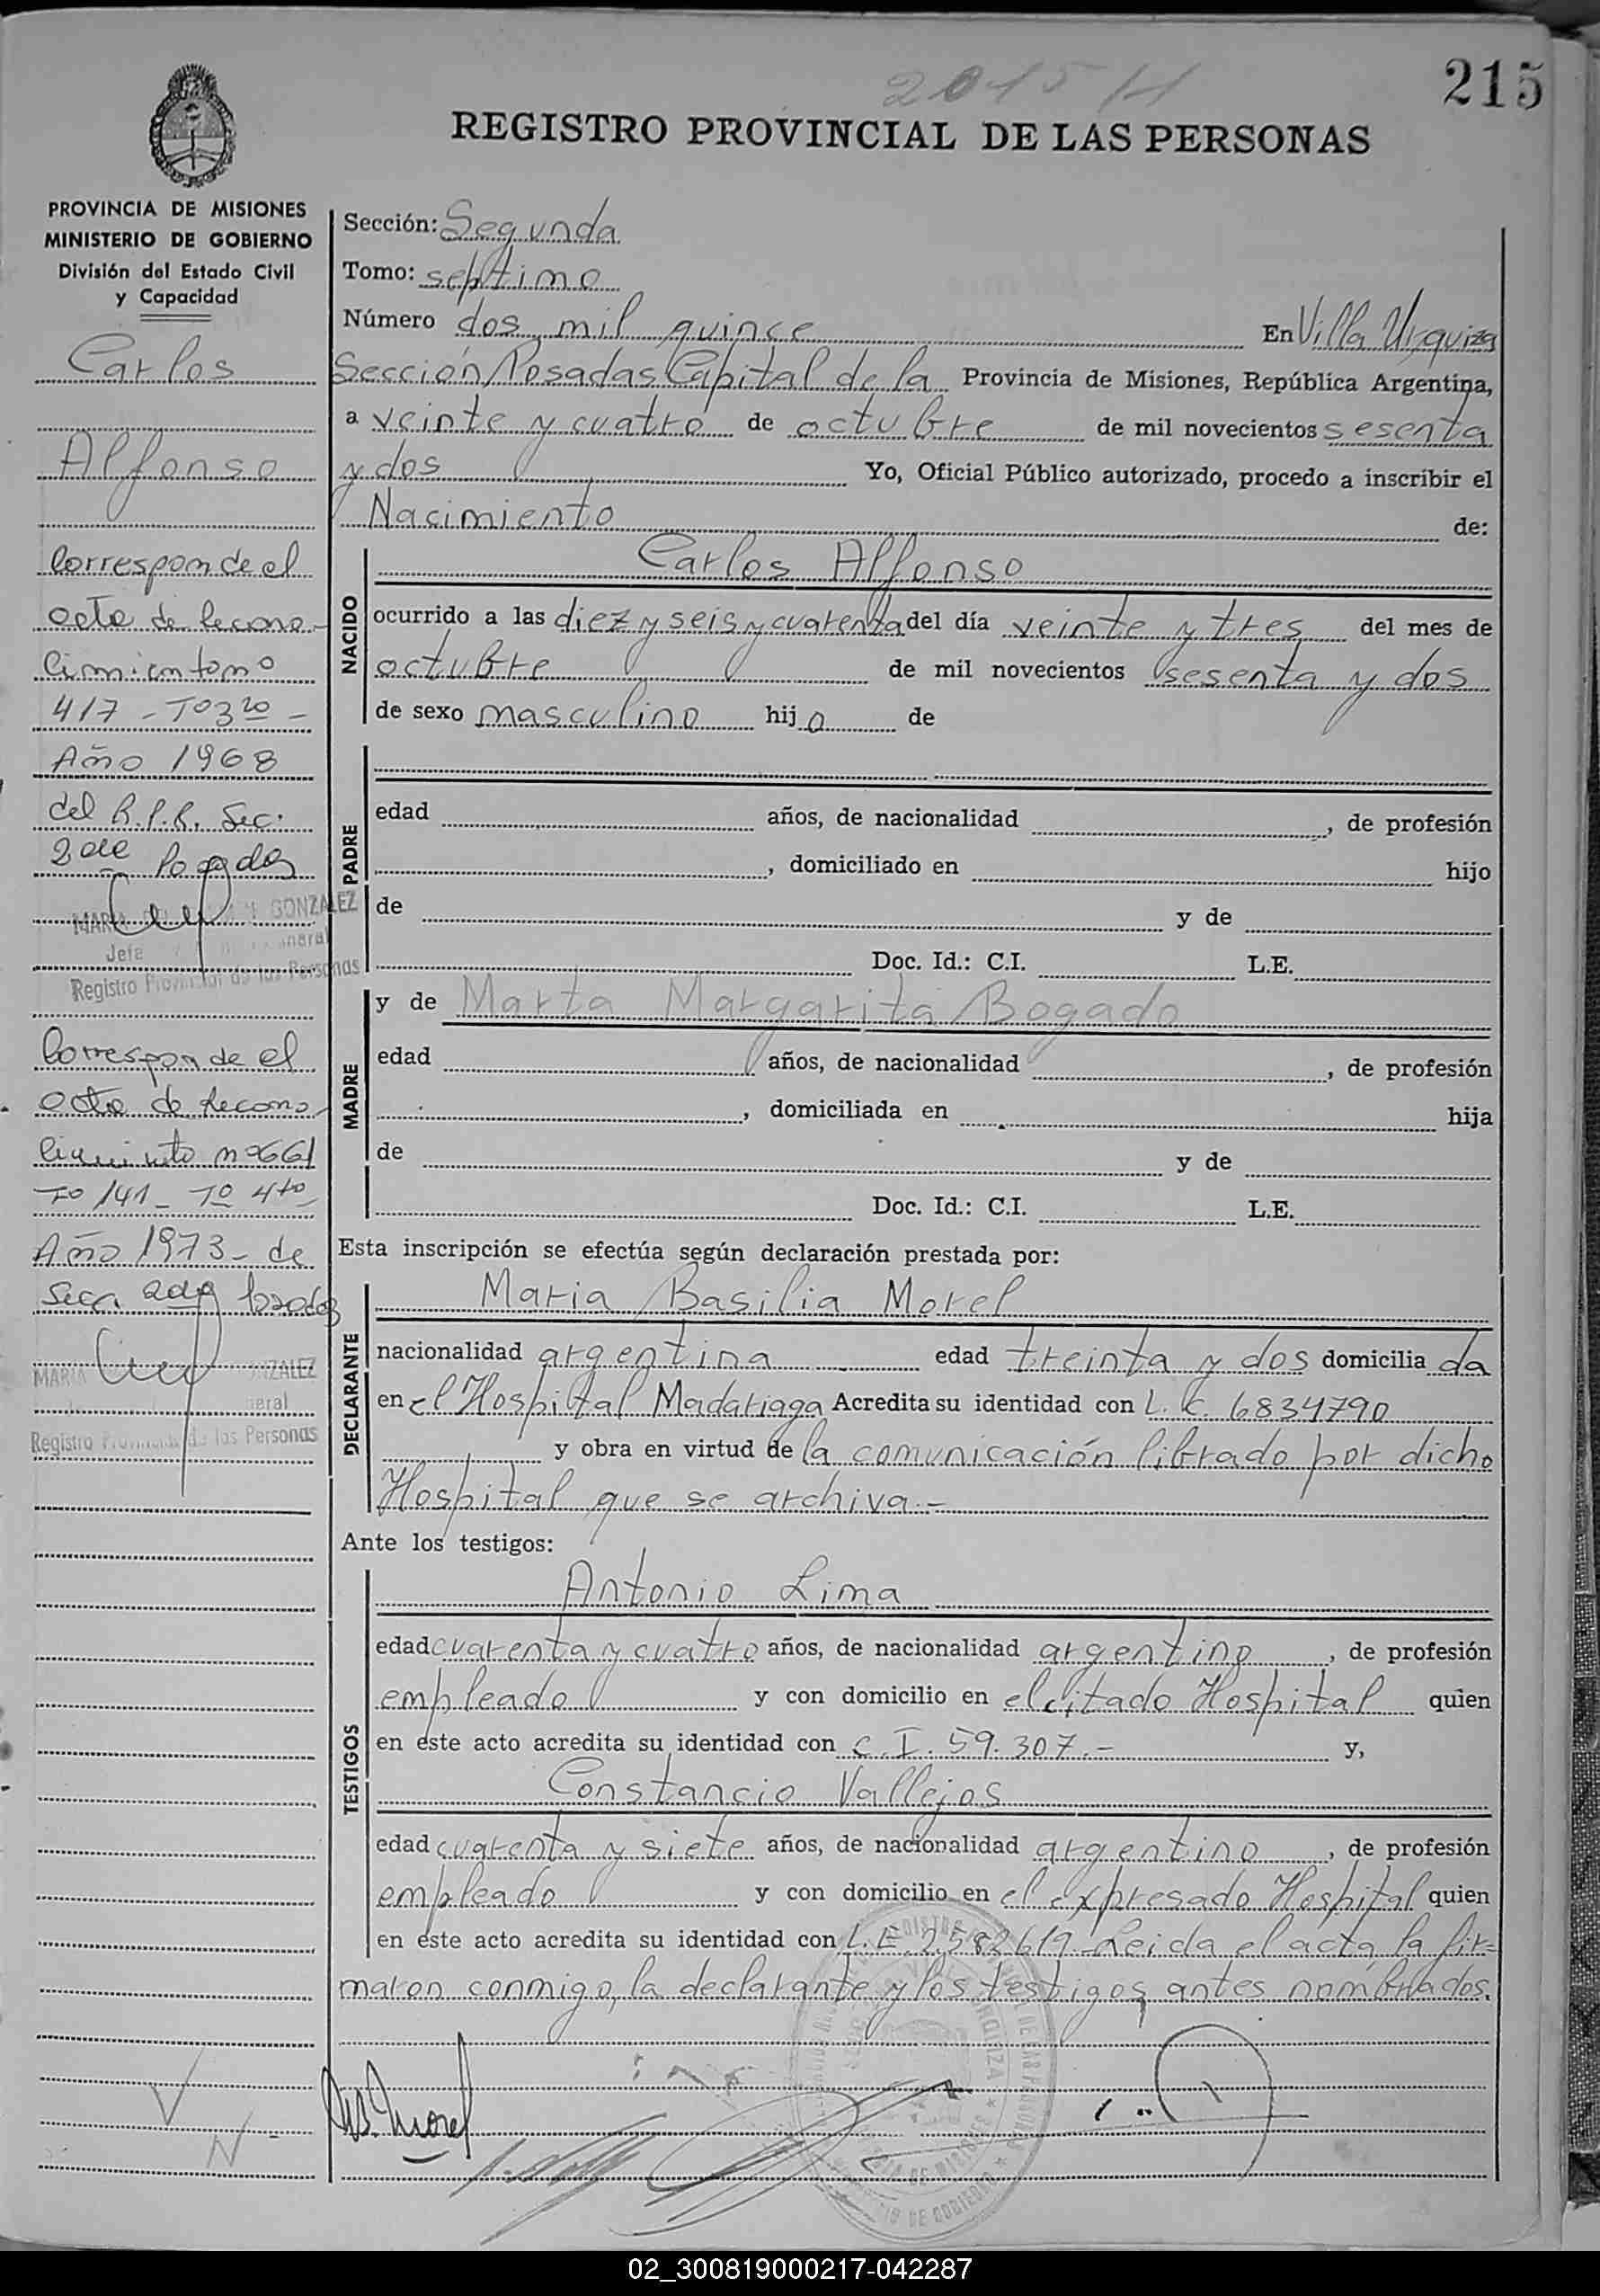 2015 H
215
REGISTRO PROVINCIAL DE LAS PERSONAS
PROVINCIA DE MISIONES
MINISTERIO DE GOBIERNO
División del Estado Civil
y Capacidad
Carlos
Alfonso
Corresponde el
acta de Recono-
cimiento nº
417 - Tº 3ro -
Año 1968
del R.P.P. Sec.
2da Posadas
MARIA GONZALEZ
Jefe
Registro Provincial de las Personas
Corresponde el
acta de Recono-
cimiento nº 661
Fº 141 - Tº 4to
Año 1973 - de
Secc. 2da Posadas
MARIA
Registro Provincial de las Personas
V
N -
Sección: Segunda
Tomo: septimo
Número dos mil quince En Villa Urquiza
Sección Posadas Capital de la Provincia de Misiones, República Argentina,
a veinte y cuatro de octubre de mil novecientos sesenta
y dos Yo, Oficial Público autorizado, procedo a inscribir el
Nacimiento de:
NACIDO
Carlos Alfonso
ocurrido a las diez y seis y cuarenta del día veinte y tres del mes de
octubre de mil novecientos sesenta y dos
de sexo masculino hijo de
PADRE
edad años, de nacionalidad , de profesión
, domiciliado en hijo
de y de
Doc. Id.: C.I. L.E.
MADRE
y de Marta Margarita Bogado
edad años, de nacionalidad , de profesión
, domiciliada en hija
de y de
Doc. Id.: C.I. L.E.
Esta inscripción se efectúa según declaración prestada por:
DECLARANTE
Maria Basilia Morel
nacionalidad argentina edad treinta y dos domiciliada
en el Hospital Madariaga Acredita su identidad con L. C. 6834790
y obra en virtud de la comunicación librado por dicho
Hospital que se archiva.-
Ante los testigos:
TESTIGOS
Antonio Lima
edad cuarenta y cuatro años, de nacionalidad argentino , de profesión
empleado y con domicilio en el citado Hospital quien
en este acto acredita su identidad con C. I. 59.307.- y,
Constancio Vallejos
edad cuarenta y siete años, de nacionalidad argentino , de profesión
empleado y con domicilio en el expresado Hospital quien
en este acto acredita su identidad con L.E. 2582619 Leida el acta, la fir=
maron conmigo, la declarante y los testigos antes nombrados.
M.B. Morel
02_300819000217-042287